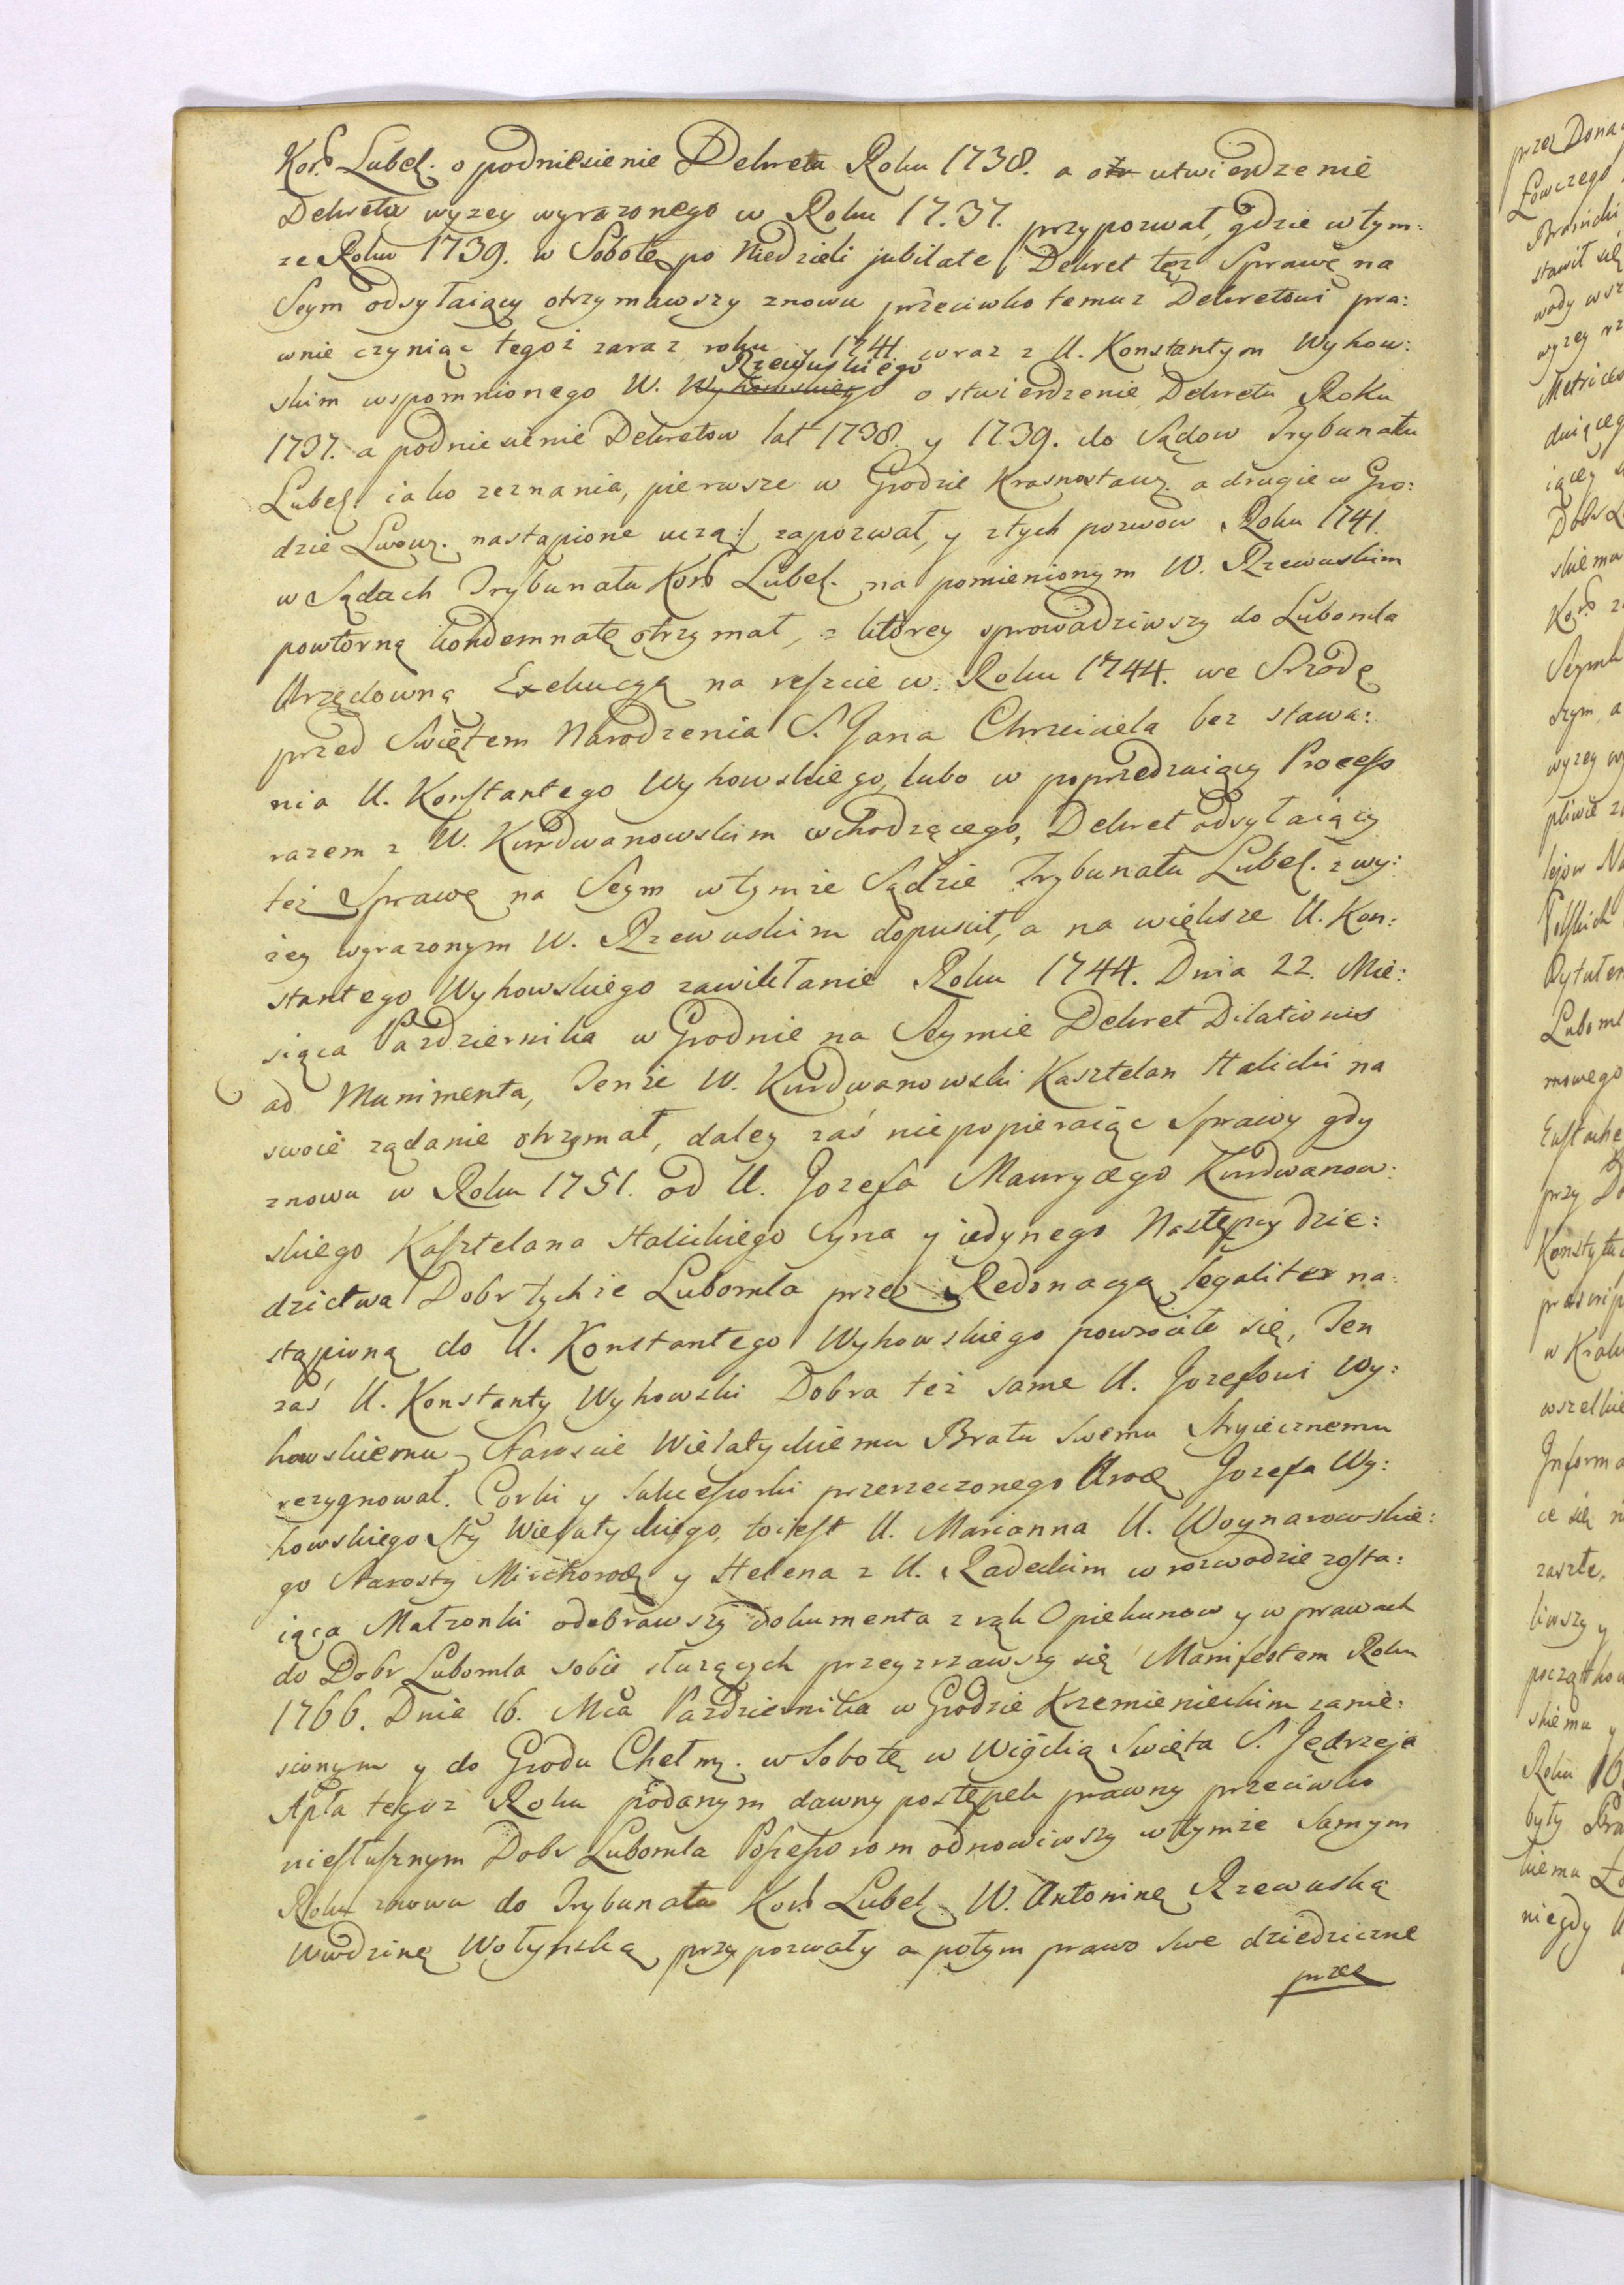 Kor. Lubel. o podniesienie Dekretu Roku 1738. a utwierdzenie
Dekretu wyzey wyrazonego w Roku 17.37. przypozwał, gdzie w tym:
ze Roku 1739. w Sobotę po Niedzieli jubilate Dekret tęz Sprawę na
Seym odsyłaiący otrzymawszy znowu przeciwko temuz Dekretowi pra:
wnie czyniąc tegoż zaraz roku 1741 wraz z U. Konstantym Wyhow:
skim wspomnionego W. Rzewuskiego o stwierdzenie Dekretu Roku
1737. a podniesienie Dekretow lat 1738. y 1739. do Sądow Trybunału
Lubel. iako zeznania, pierwsze w Grodzie Krasnostaw. a drugie w Gro:
dzie Lwow. nastąpione uczą:/ zapozwał, y z tych pozwow Roku 1741.
w Sądach Trybunału Kor. Lubel. na pomienionym W. Rzewuskim
powtorną kondemnatę otrzymał, z ktorey sprowadziwszy do Lubomla
Urzędowną Exekucyą na reszcie w Roku 1744. we Srzodę
przed Swiętem Narodzenia S. Jana Chrzciciela bez stawa:
nia U. Konstantego Wyhowskiego, lubo w poprzedzaiący Process
razem z W. Kurdwanowskim wchodzącego, Dekret odsyłaiący
też Sprawę na Seym w tymże Sądzie Trybunału Lubel. z wy:
żey wyrazonym W. Rzewuskim dopuscił, a na większe U. Kon:
stantego Wyhowskiego zawikłanie Roku 1744. Dnia 22. Mie:
siąca Pazdziernika w Grodnie na Seymie Dekret Dilationis
ad Munimenta, Tenże W. Kurdwanowski Kasztelan Halicki na
swoie ządanie otrzymał, daley zaś niepopieraiąc Sprawy gdy
znowu w Roku 1751. od U. Jozefa Maurycego Kurdwanow:
skiego Kasztelana Halickiego Syna y iedynego Następcy dzie:
dzictwa Dobr tychże Lubomla przez Redonacyą legaliter na:
stąpioną do U. Konstantego Wyhowskiego powrociło się, Ten
zaś U. Konstanty Wyhowski Dobra też same U. Jozefowi Wy:
howskiemu Staroscie Wielatyckiemu Bratu swemu Stryiecznemu
rezygnował. Corki y Sukcessorki przerzeczonego Urodz Jozefa Wy:
howskiego Sty Wielatyckiego, toiest U. Marianna U. Woynarowskie:
go Starosty y Helena z U. Radeckim w rozwodzie zosta:
iąca Małzonki odebrawszy dokumenta z rąk Opiekunow y w prawach
do Dobr Lubomla sobie słuzących przeyrzawszy się Manifestem Roku
1766. Dnia 16. Mca Pazdziernika w Grodzie Krzemienieckim zanie:
sionym y do Grodu Chełm. w Sobotę w Wigilią Swięta S. Jędrzeja
Apła tegoz Roku podanym dawny postępek prawny przeciwko
niesłusznym Dobr Lubomla Possessorom odnowiwszy w tymże samym
Roku znowu do Trybunału Kor. Lubel. W. Antoninę Rzewuską
Wwodzinę Wołynską przypozwały a potym prawo swe dziedziczne
przez